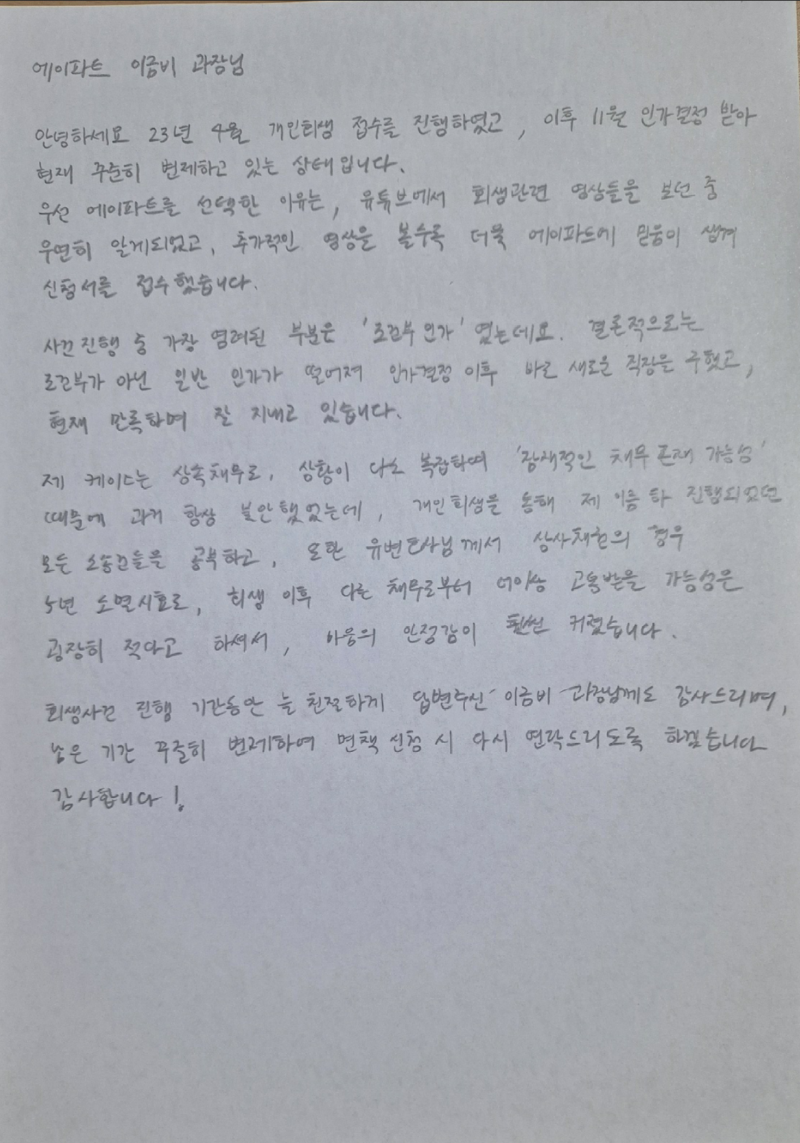 에이파트 이금비 과장님
안녕하세요 23년 4월 개인회생 접수를 진행하였고, 이후 11월 인가결정 받아
현재 꾸준히 변제하고 있는 상태입니다.
우선 에이파트를 선택한 이유는, 유튜브에서 회생관련 영상들을 보던 중
우연히 알게되었고, 추가적인 영상을 볼수록 더욱 에이파트에 믿음이 생겨
신청서를 접수했습니다.
사건 진행 중 가장 염려된 부분은 '조건부 인가' 였는데요. 결론적으로는
조건부가 아닌 일반 인가가 떨어져 인가결정 이후 바로 새로운 직장을 구했고,
현재 만족하며 잘 지내고 있습니다.
제 케이스는 상속채무로, 상황이 다소 복잡하며 '잠재적인 채무 존재 가능성'
때문에 과거 항상 불안했었는데, 개인회생을 통해 제 이름 하 진행되었던
모든 소송건들을 공부하고, 또한 유변호사님께서 상사채권의 경우
5년 소멸시효로, 회생 이후 다른 채무로부터 더이상 고통받을 가능성은
굉장히 적다고 하셔서, 마음의 안정감이 훨씬 커졌습니다.
회생사건 진행 기간동안 늘 친절하게 답변주신 이금비 과장님께도 감사드리며,
남은 기간 꾸준히 변제하여 면책 신청 시 다시 연락드리도록 하겠습니다
감사합니다!